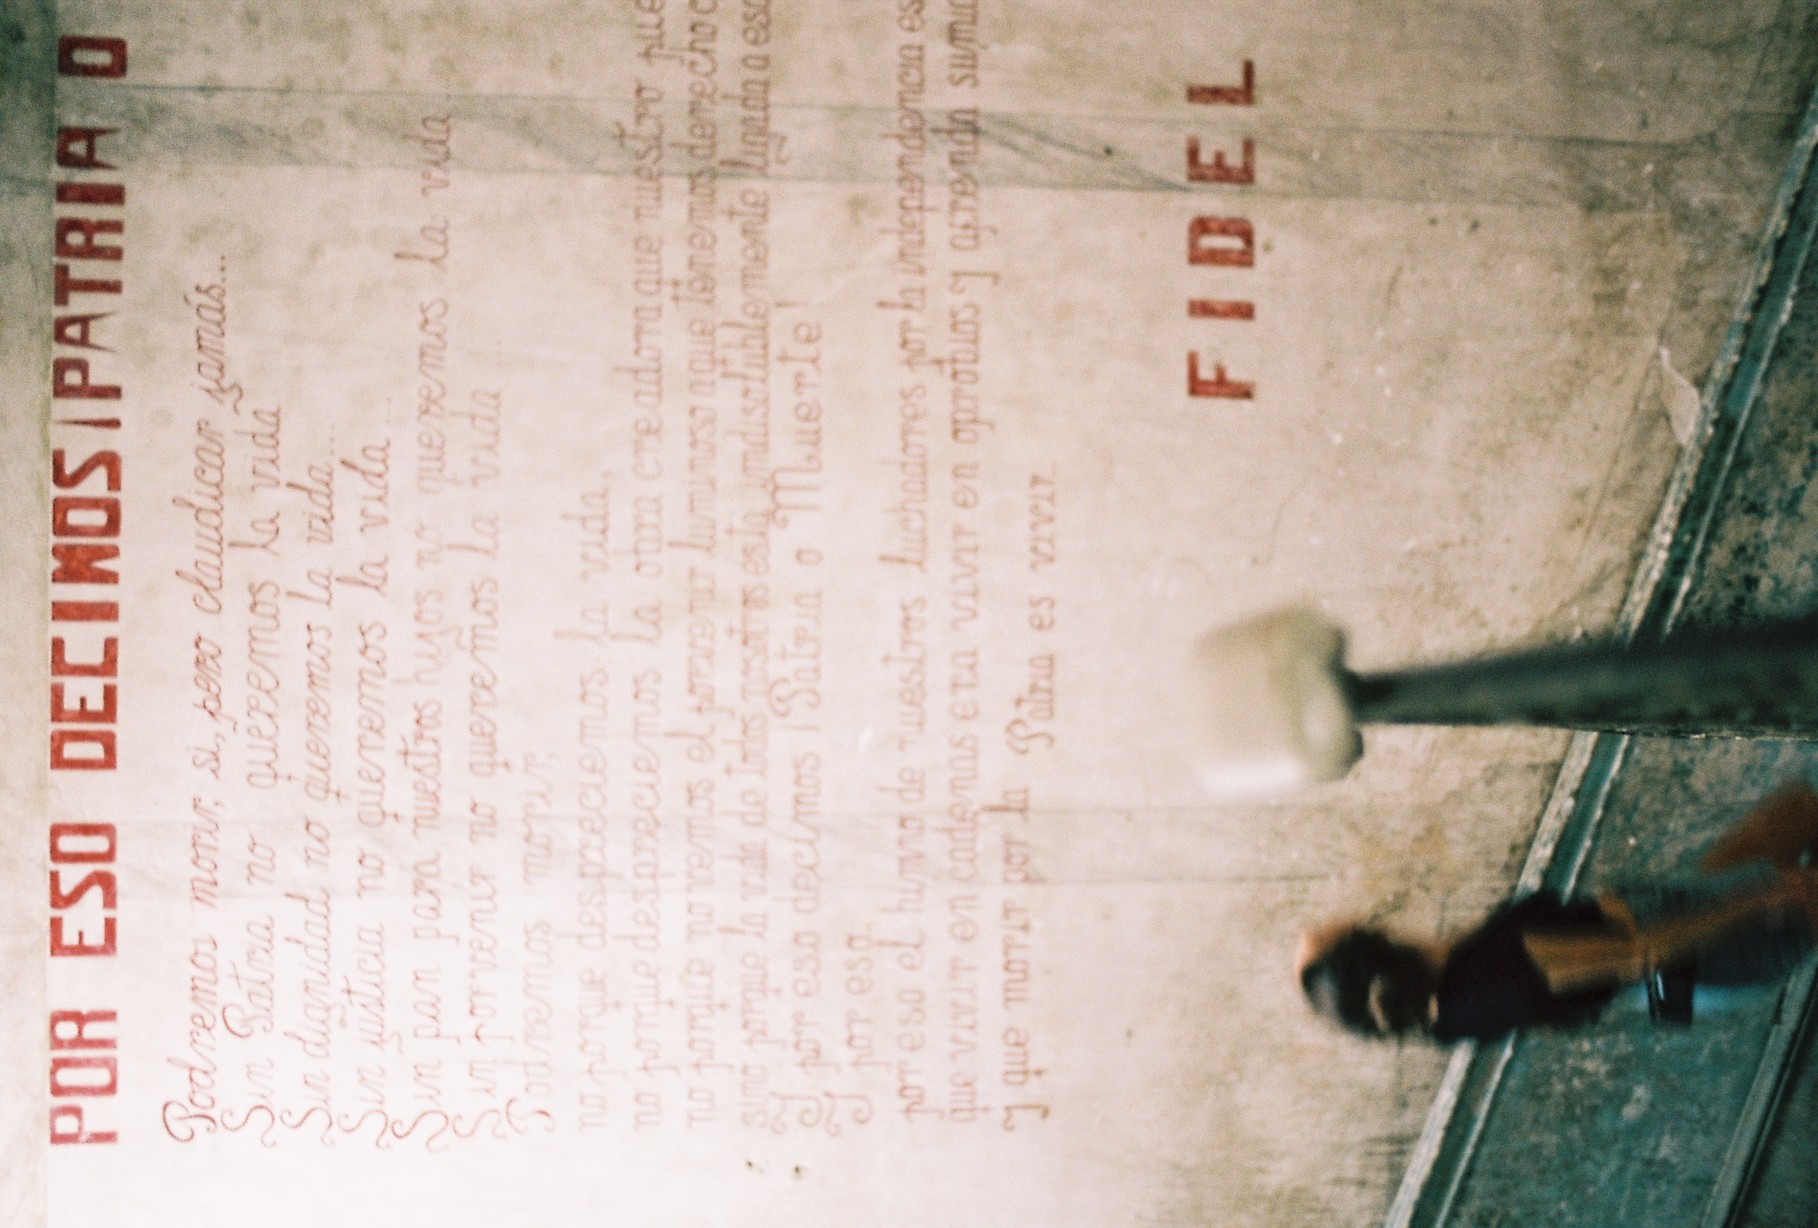 POR ESO DECIMOS ¡PATRIA O
Podremos morir, si, pero claudicar jamás...
Sin Patria no queremos la vida
Sin dignidad no queremos la vida...
Sin justicia no queremos la vida...
Sin pan para nuestros hijos no queremos la vida
Sin porvenir no queremos la vida...
Podremos morir,
no porque despreciemos la vida,
no porque despreciemos la obra creadora que nuestro pue
no porque no vemos el porvenir luminoso a que tenemos derecho c
sino porque la vida de todos nosotros está indisolublemente ligada a esa
Y por eso decimos ¡Patria o Muerte!
Y por eso,
por eso el himno de nuestros luchadores por la independencia es
que vivir en cadenas era vivir en oprobios y afrenda sumi
y que morir por la Patria es vivir.
FIDEL